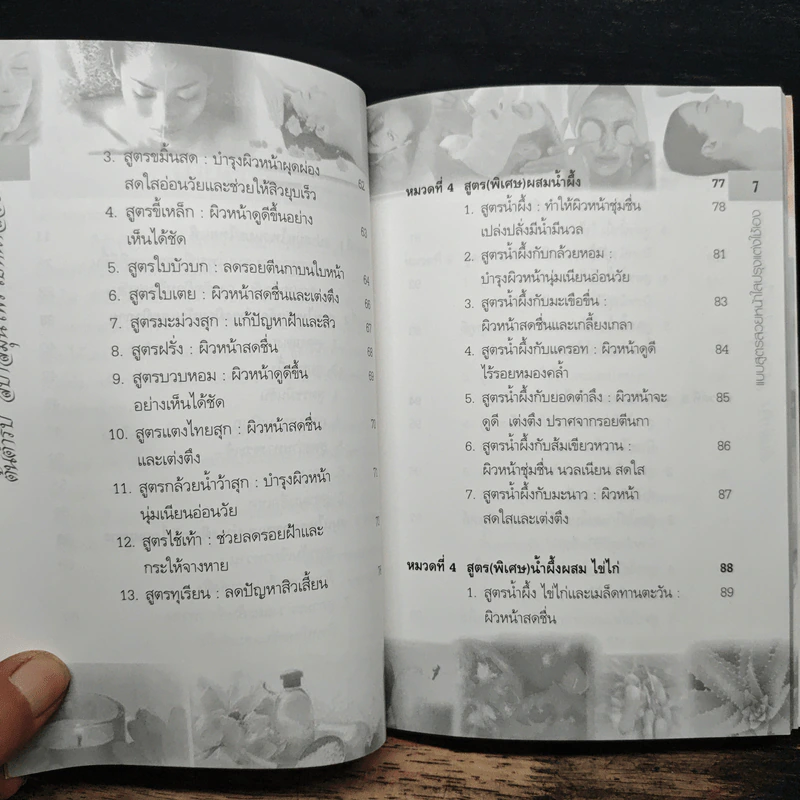 3. สูตรขมิ้นสด : บำรุงผิวหน้าผุดผ่อง 62
สดใสอ่อนวัยและช่วยให้สิวยุบเร็ว
4. สูตรขี้เหล็ก : ผิวหน้าดูดีขึ้นอย่าง 63
เห็นได้ชัด
5. สูตรใบบัวบก : ลดรอยตีนกาบนใบหน้า 64
6. สูตรใบเตย : ผิวหน้าสดชื่นและเต่งตึง 66
7. สูตรมะม่วงสุก : แก้ปัญหาฝ้าและสิว 67
8. สูตรฝรั่ง : ผิวหน้าสดชื่น 68
9. สูตรบวบหอม : ผิวหน้าดูดีขึ้น 69
อย่างเห็นได้ชัด
10. สูตรแตงไทยสุก : ผิวหน้าสดชื่น
และเต่งตึง
11. สูตรกล้วยน้ำว้าสุก : บำรุงผิวหน้า
นุ่มเนียนอ่อนวัย
12. สูตรไช้เท้า : ช่วยลดรอยฝ้าและ
กระให้จางหาย
13. สูตรทุเรียน : ลดปัญหาสิวเสี้ยน
หมวดที่ 4 สูตร(พิเศษ)ผสมน้ำผึ้ง 77
1. สูตรน้ำผึ้ง : ทำให้ผิวหน้าชุ่มชื่น 78
เปล่งปลั่งมีน้ำมีนวล
2. สูตรน้ำผึ้งกับกล้วยหอม : 81
บำรุงผิวหน้านุ่มเนียนอ่อนวัย
3. สูตรน้ำผึ้งกับมะเขือขื่น : 83
ผิวหน้าสดชื่นและเกลี้ยงเกลา
4. สูตรน้ำผึ้งกับแครอท : ผิวหน้าดูดี 84
ไร้รอยหมองคล้ำ
5. สูตรน้ำผึ้งกับยอดตำลึง : ผิวหน้าจะ 85
ดูดี เต่งตึง ปราศจากรอยตีนกา
6. สูตรน้ำผึ้งกับส้มเขียวหวาน : 86
ผิวหน้าชุ่มชื่น นวลเนียน สดใส
7. สูตรน้ำผึ้งกับมะนาว : ผิวหน้า 87
สดใสและเต่งตึง
หมวดที่ 4 สูตร(พิเศษ)น้ำผึ้งผสม ไข่ไก่ 88
1. สูตรน้ำผึ้ง ไข่ไก่และเมล็ดทานตะวัน : 89
ผิวหน้าสดชื่น
7